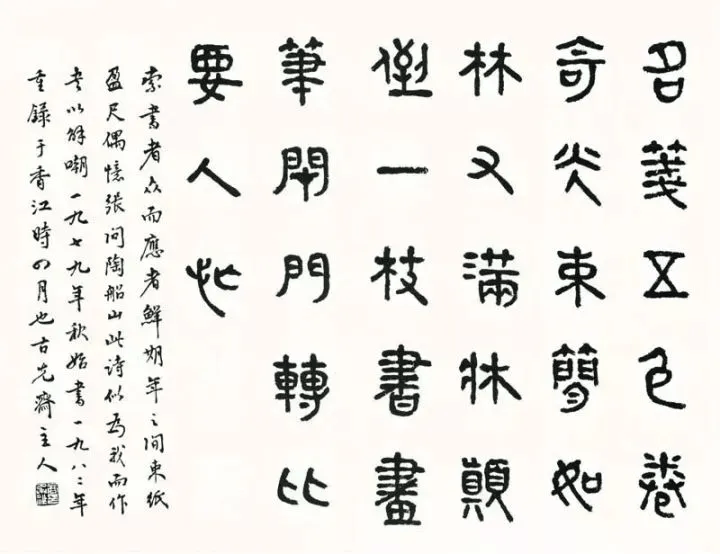 名箋五色卷
奇光束簡如
林又滿牀顛
倒一枝書畫
筆閉門轉比
要人忙
索書者众而應者鮮期年之间束紙
盈尺偶憶張问陶船山此诗似為我而作
書以解嘲一九七九年秋始書一九八二年
重錄于香江時四月也古先齋主人